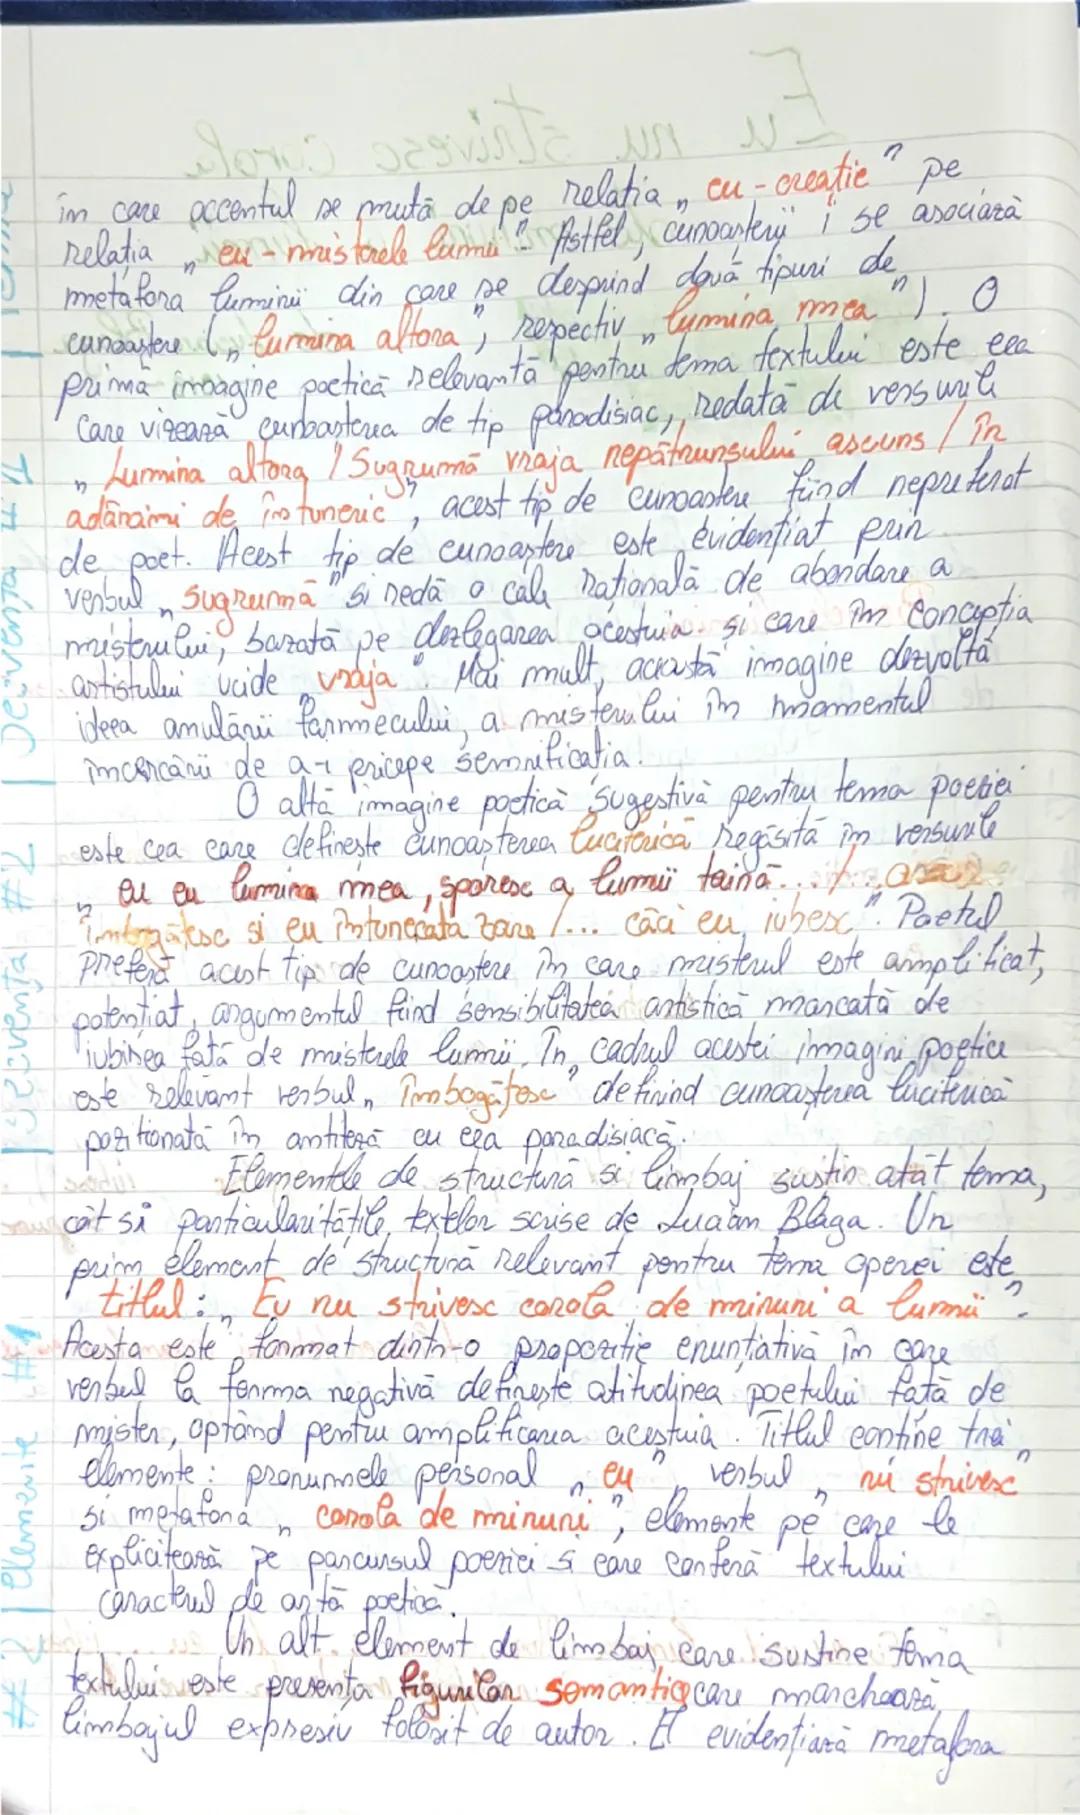 Eu nu strivesc corola
în care accentul se mută de pe relația „eu-creație" pe
relația „eu - misterele lumii". Astfel, cunoașterii i se asociază
metafora luminii din care se desprind două tipuri de
cunoaștere („lumina altora", respectiv „lumina mea"). O
primă imagine poetică relevantă pentru tema textului este cea
care vizează cunoașterea de tip paradisiac, redată de versurile
„Lumina altora / Sugrumă vraja nepătrunsului ascuns / în
adâncimi de întuneric", acest tip de cunoaștere fiind nepreferat
de poet. Acest tip de cunoaștere este evidențiat prin
verbul „sugrumă" si redă o cale rațională de abordare a
misterului, bazată pe dezlegarea acestuia și care în concepția
artistului ucide „vraja". Mai mult, această imagine dezvoltă
ideea anulării farmecului, a misterului în momentul
încercării de a-i pricepe semnificația.
O altă imagine poetică sugestivă pentru tema poeziei
este cea care definește cunoașterea luciferică regăsită în versurile
„eu cu lumina mea, sporesc a lumii taină... /...
îmbogățesc si eu întunecata zare /... căci eu iubesc". Poetul
preferă acest tip de cunoaștere în care misterul este amplificat,
potențiat, argumentul fiind sensibilitatea artistică marcată de
iubirea față de misterele lumii. În cadrul acestei imagini poetice
este relevant verbul „îmbogățesc" definind cunoașterea luciferică
pozitionată în antiteză cu cea paradisiacă.
Elementele de structură si limbaj susțin atât tema,
cât si particularitățile textelor scrise de Lucian Blaga. Un
prim element de structură relevant pentru tema operei este
titlul: „Eu nu strivesc corola de minuni a lumii".
Acesta este format dintr-o propoziție enunțiativă în care
verbul la forma negativă definește atitudinea poetului față de
mister, optând pentru amplificarea acestuia. Titlul conține trei
elemente: pronumele personal „eu", verbul „nu strivesc"
si metafora „corola de minuni", elemente pe care le
explicitează pe parcursul poeziei si care conferă textului
caracterul de artă poetică.
Un alt element de limbaj care sustine tema
textului este prezența figurilor semantice care marchează
limbajul expresiv folosit de autor. El evidențiază metafora
# 2 | Elemente #1 | Secvența #2 | Secvența #1 |